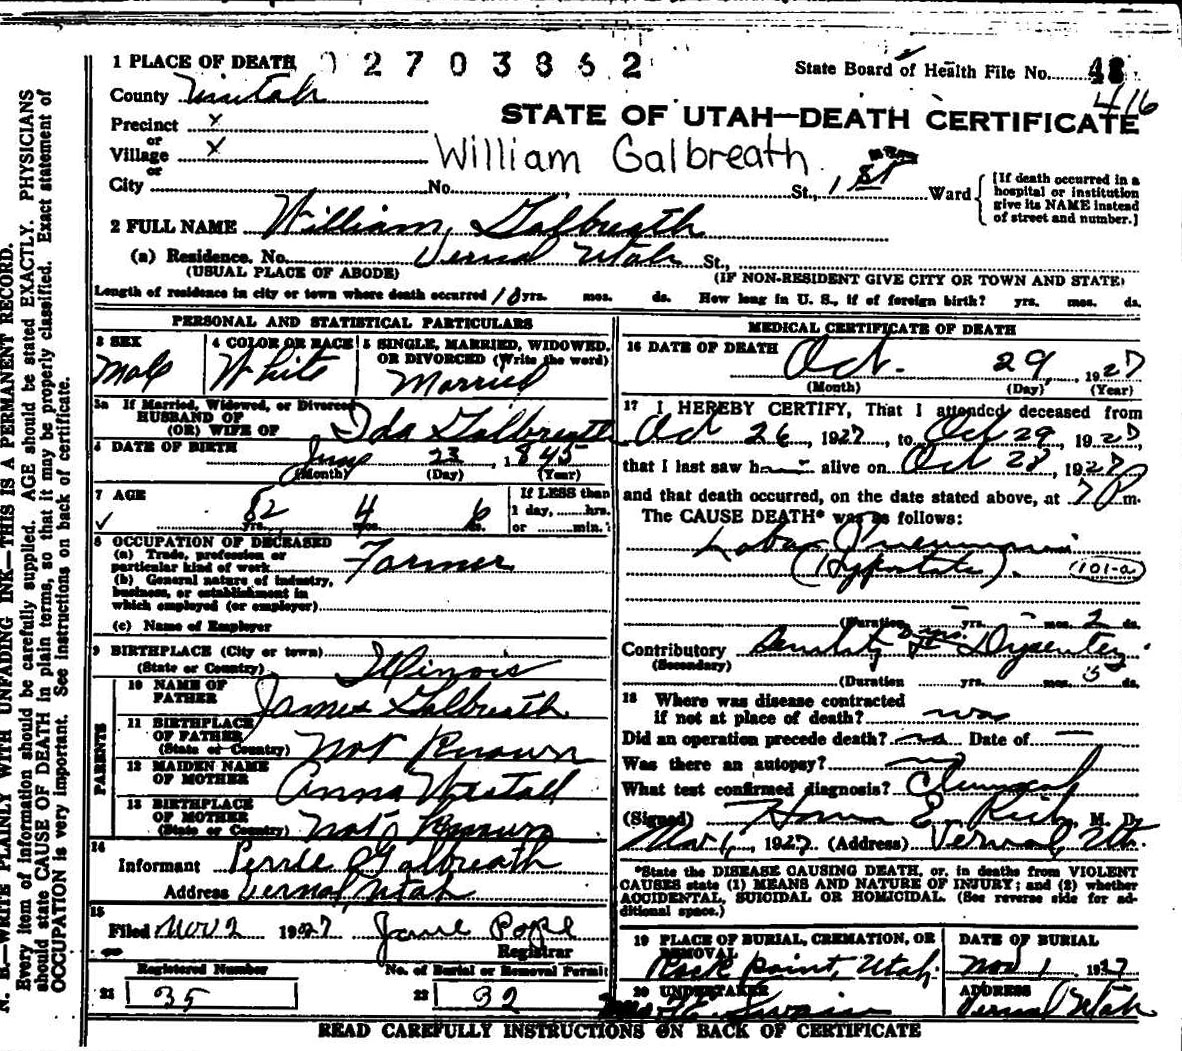 1 PLACE OF DEATH
02703862
State Board of Health File No. 48
416
County Uintah
STATE OF UTAH—DEATH CERTIFICATE
Precinct x
or
Village x
William Galbreath
or
City No. St., 1 st Ward
[If death occurred in a hospital or institution give its NAME instead of street and number.]
2 FULL NAME William Galbreath
(a) Residence. No. Vernal Utah St.,
(USUAL PLACE OF ABODE) (IF NON-RESIDENT GIVE CITY OR TOWN AND STATE)
Length of residence in city or town where death occurred 10 yrs. mos. ds. How long in U. S., if of foreign birth? yrs. mos. ds.
PERSONAL AND STATISTICAL PARTICULARS
3 SEX
Male
4 COLOR OR RACE
White
5 SINGLE, MARRIED, WIDOWED,
OR DIVORCED (Write the word)
Married
3a If Married, Widowed, or Divorced
HUSBAND OF
(OR) WIFE OF Ida Galbreath
6 DATE OF BIRTH June 23, 1845
(Month) (Day) (Year)
7 AGE
82 yrs. 4 mos. 6
If LESS than
1 day, hrs.
or min.?
8 OCCUPATION OF DECEASED
(a) Trade, profession or
particular kind of work Farmer
(b) General nature of industry,
business, or establishment in
which employed (or employer)
(c) Name of Employer
9 BIRTHPLACE (City or town)
(State or Country) Illinois
PARENTS
10 NAME OF
FATHER James Galbreath
11 BIRTHPLACE
OF FATHER
(State or Country) Not Known
12 MAIDEN NAME
OF MOTHER Anna Westall
13 BIRTHPLACE
OF MOTHER
(State or Country) Not Known
14
Informant Perrie Galbreath
Address Vernal, Utah
15
Filed Nov 2 1927 Jane Pope
Registrar
Registered Number
21 35
No. of Burial or Removal Permit
22 32
MEDICAL CERTIFICATE OF DEATH
16 DATE OF DEATH Oct. 29, 1927
(Month) (Day) (Year)
17 I HEREBY CERTIFY, That I attended deceased from
Oct 26, 1927, to Oct 29, 1927
that I last saw him alive on Oct 28, 1927
and that death occurred, on the date stated above, at 7 P m.
The CAUSE DEATH* was as follows:
Lobar Pneumonia
(Hypostatic). (101-a)
(Duration yrs. mos. 2 ds.
Contributory Senility Dysentery
(Secondary)
(Duration yrs. mos. 5 ds.
18 Where was disease contracted
if not at place of death? was
Did an operation precede death? no Date of —
Was there an autopsy? no
What test confirmed diagnosis? Clinical
(Signed) Homer E. Rich, M. D.
Nov 1, 1927 (Address) Vernal Ut.
*State the DISEASE CAUSING DEATH, or, in deaths from VIOLENT
CAUSES state (1) MEANS AND NATURE OF INJURY; and (2) whether
ACCIDENTAL, SUICIDAL OR HOMICIDAL. (See reverse side for ad-
ditional space.)
19 PLACE OF BURIAL, CREMATION, OR
REMOVAL
Rock point, Utah
DATE OF BURIAL
Nov 1 1927
20 UNDERTAKER
Swain
ADDRESS
Vernal Utah
READ CAREFULLY INSTRUCTIONS ON BACK OF CERTIFICATE
N. B.—WRITE PLAINLY WITH UNFADING INK—THIS IS A PERMANENT RECORD.
Every item of information should be carefully supplied. AGE should be stated EXACTLY. PHYSICIANS
should state CAUSE OF DEATH in plain terms, so that it may be properly classified. Exact statement of
OCCUPATION is very important. See instructions on back of certificate.